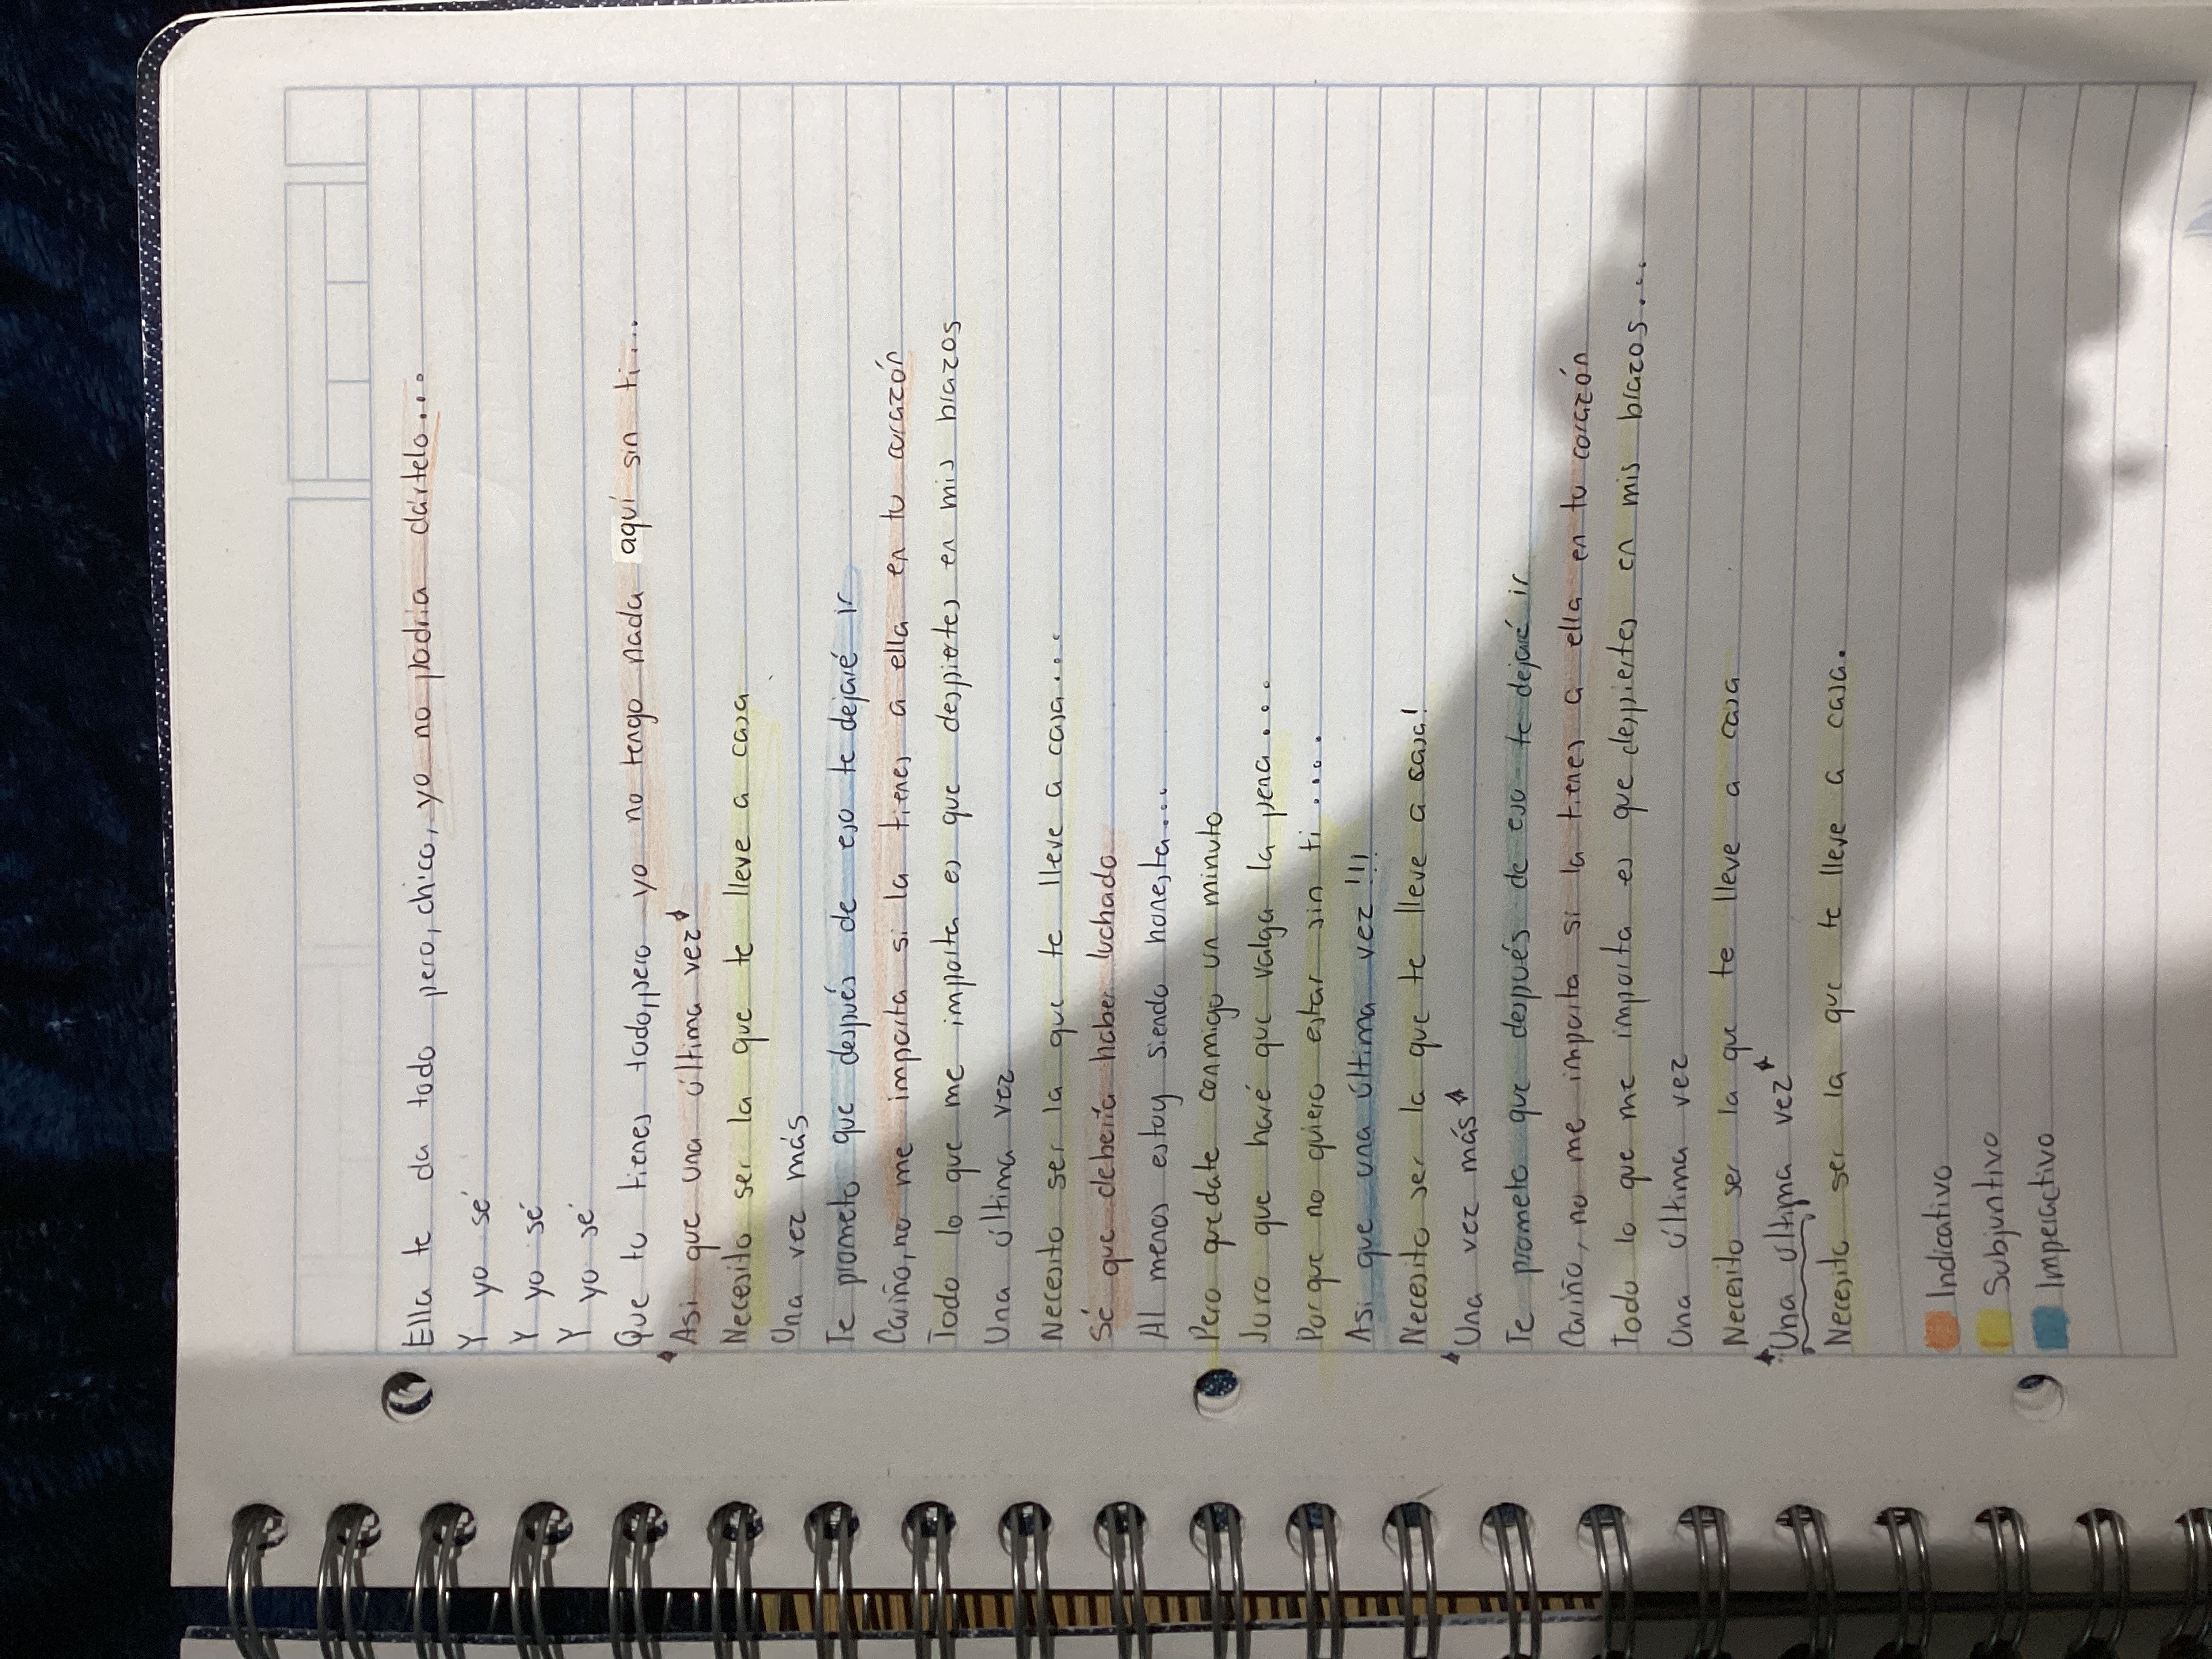 Ella te da todo pero, chico, yo no podría dártelo...
Y yo sé
Y yo sé
Y yo sé
Que tu tienes todo, pero yo no tengo nada aquí sin ti...
Asi que una última vez
Necesito ser la que te lleve a casa
Una vez más
Te prometo que después de eso te dejaré ir
Cariño, no me importa si la tienes a ella en tu corazón
Todo lo que me importa es que despiertes en mis brazos
Una última vez
Necesito ser la que te lleve a casa...
Sé que debería haber luchado
Al menos estoy siendo honesta...
Pero quedate conmigo un minuto
Juro que haré que valga la pena...
Porque no quiero estar sin ti....
Asi que una última vez!!!
Necesito ser la que te lleve a casa!
Una vez más
Te prometo que después de eso te dejaré ir
Cariño, no me importa si la tienes a ella en tu corazón
Todo lo que me importa es que despiertes en mis brazos...
Una última vez
Necesito ser la que te lleve a casa
Una última vez
Necesito ser la que te lleve a casa.
Indicativo
Subjuntivo
Imperactivo